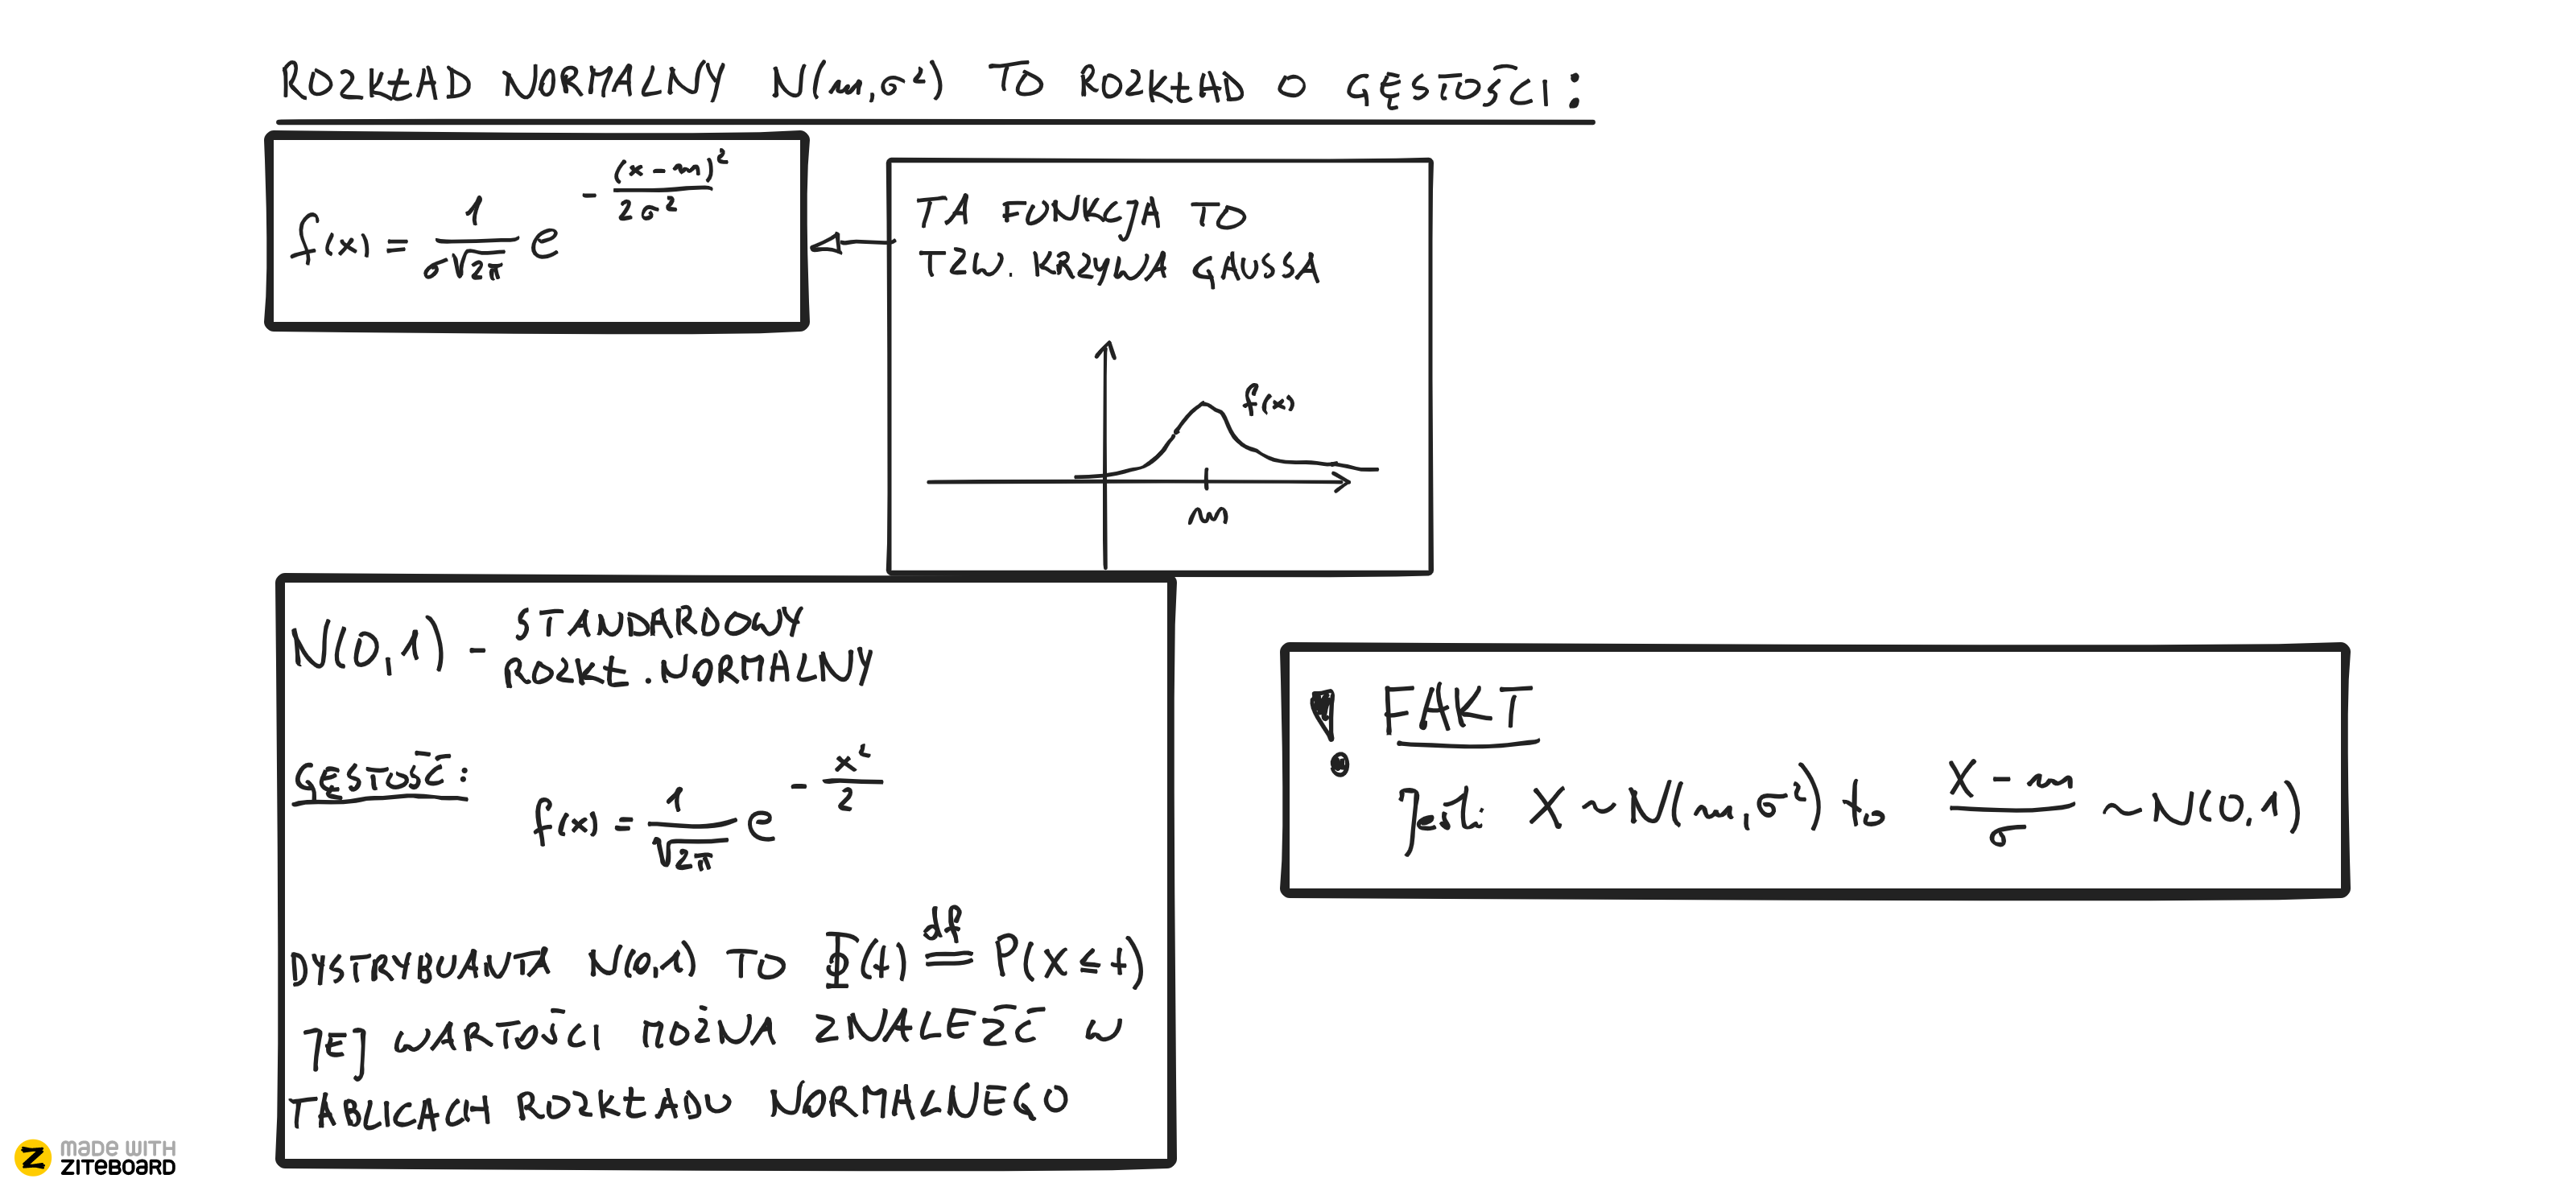 ROZKŁAD NORMALNY N(m,σ²) TO ROZKŁAD O GĘSTOŚCI:
f(x) = 1/(σ√2π) e^(-(x-m)²/(2σ²))
TA FUNKCJA TO
TZW. KRZYWA GAUSSA
f(x)
m
N(0,1) - STANDARDOWY
ROZKŁ. NORMALNY
GĘSTOŚĆ:
f(x) = 1/√2π e^(-x²/2)
DYSTRYBUANTA N(0,1) TO Φ(t) df== P(X≤t)
JEJ WARTOŚCI MOŻNA ZNALEŹĆ W
TABLICACH ROZKŁADU NORMALNEGO
! FAKT
Jeśli X ~ N(m,σ²) to (X-m)/σ ~ N(0,1)
MADE WITH
ZITEBOARD